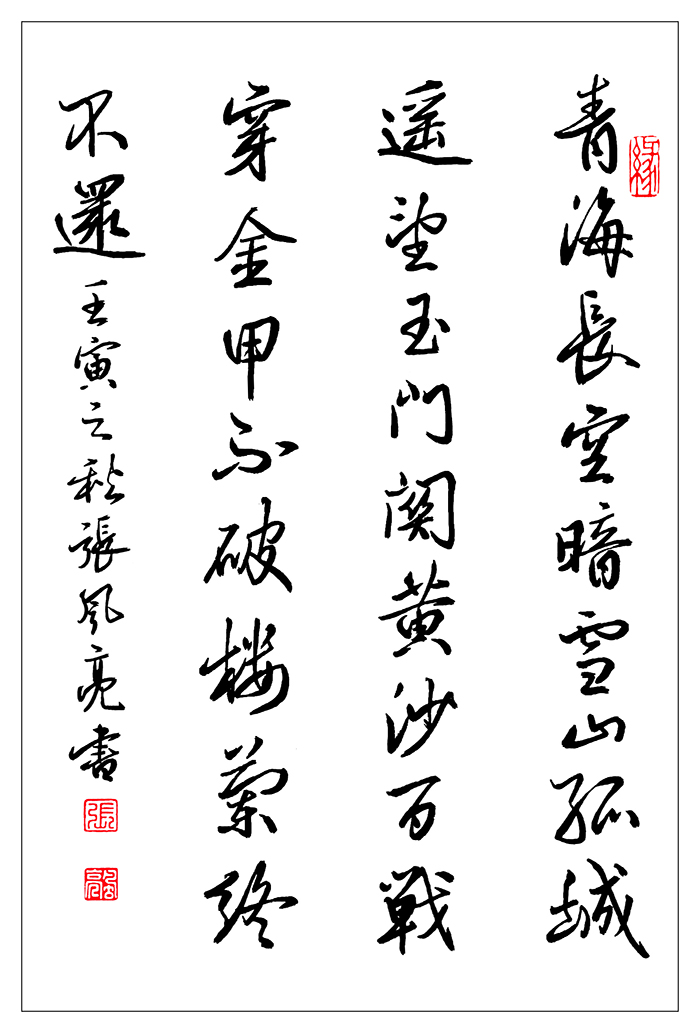 青海長空暗雪山孤城
遥望玉門関黄沙百戦
穿金甲不破楼蘭終
不還壬寅之秋張風亮書
緣
張